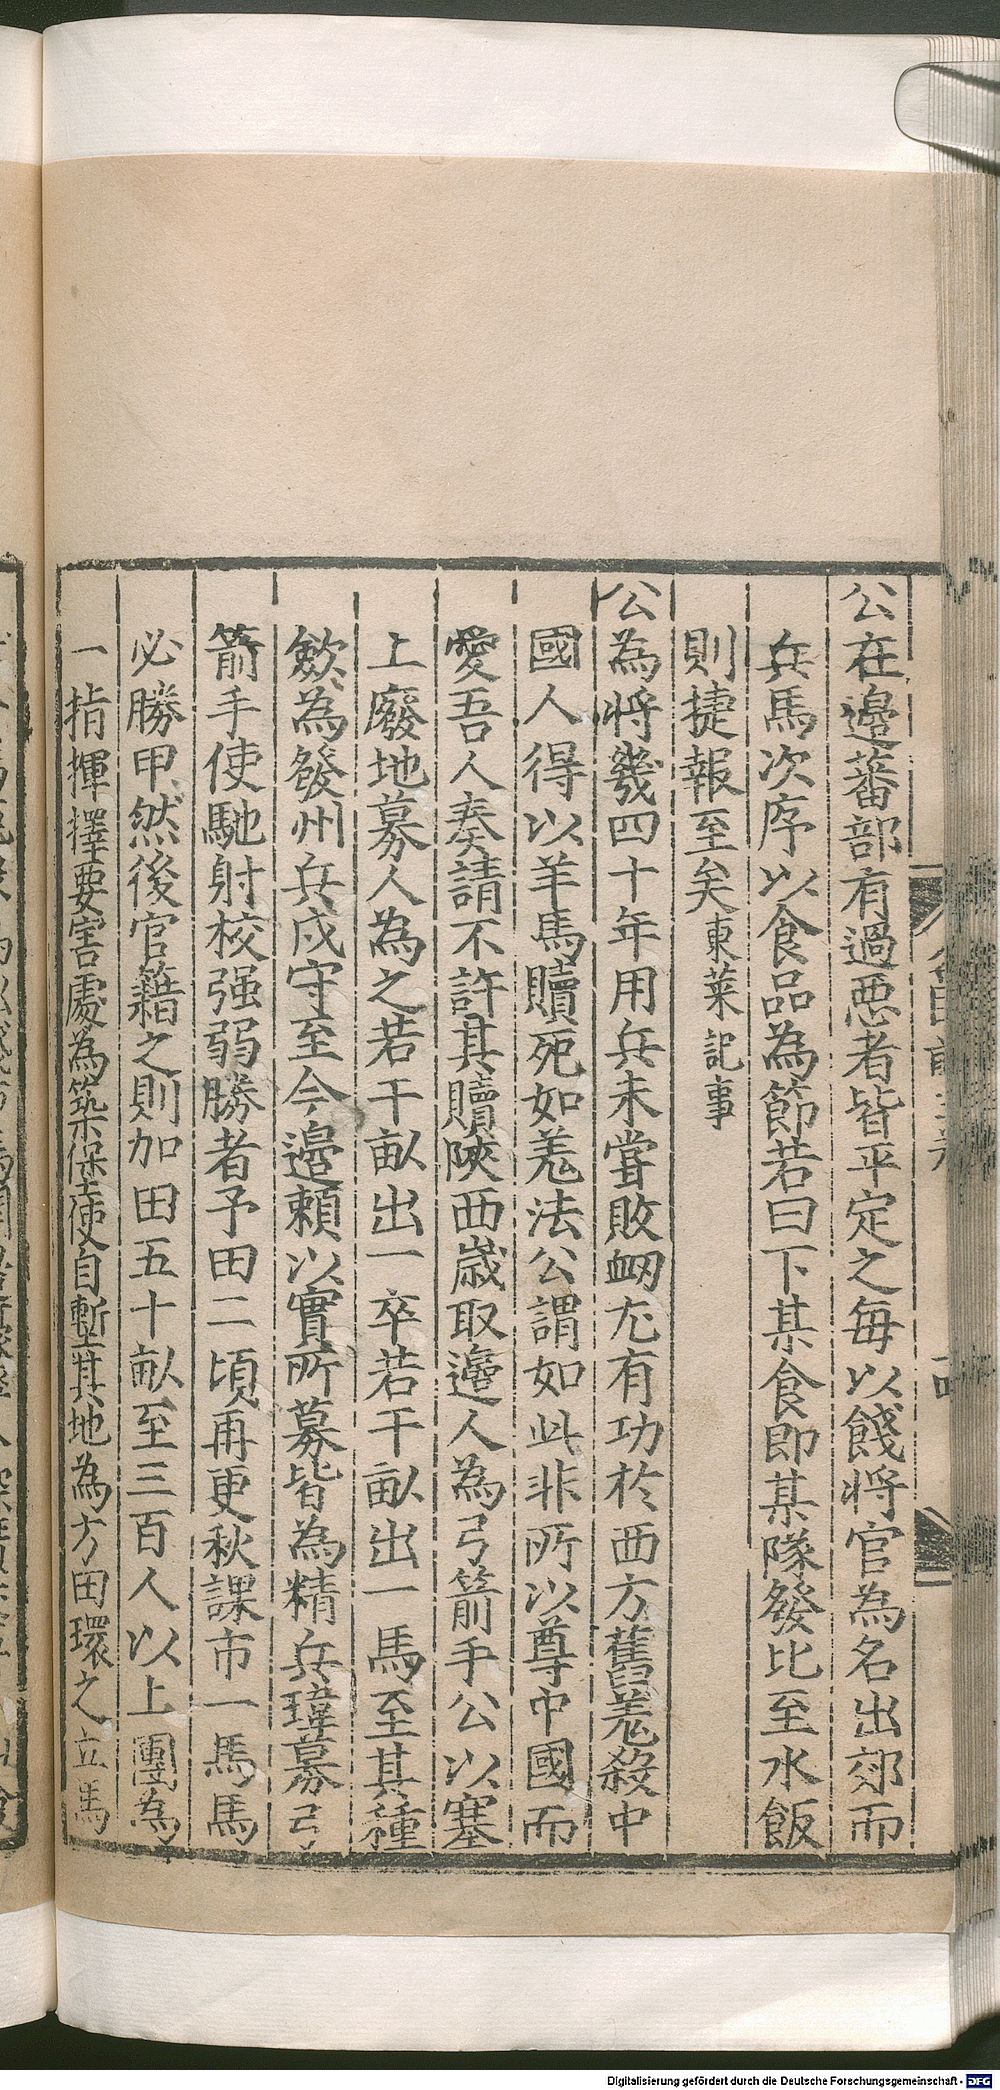 公在邉蕃部有過惡者皆平定之每以餞將官為名出郊而
兵馬次序以食品為節若曰下某食即某隊發比至水飯
則捷報至矣東萊記事
公為將幾四十年用兵未甞敗衂尤有功於西方舊羗殺中
國人得以羊馬贖死如羗法公謂如此非所以尊中國而
愛吾人奏請不許其贖陝西歳取邉人為弓箭手公以塞
上廢地募人為之若干畝出一卒若干畝出一馬至其種
歛為發州兵戍守至今邉賴以實所募皆為精兵瑋募弓
箭手使馳射校强弱勝者予田二頃再更秋課市一馬馬
必勝甲然後官籍之則加田五十畝至三百人以上團為
一指揮擇要害處為築堡使自塹其地為方田環之立馬
Digitalisierung gefördert durch die Deutsche Forschungsgemeinschaft - DFG